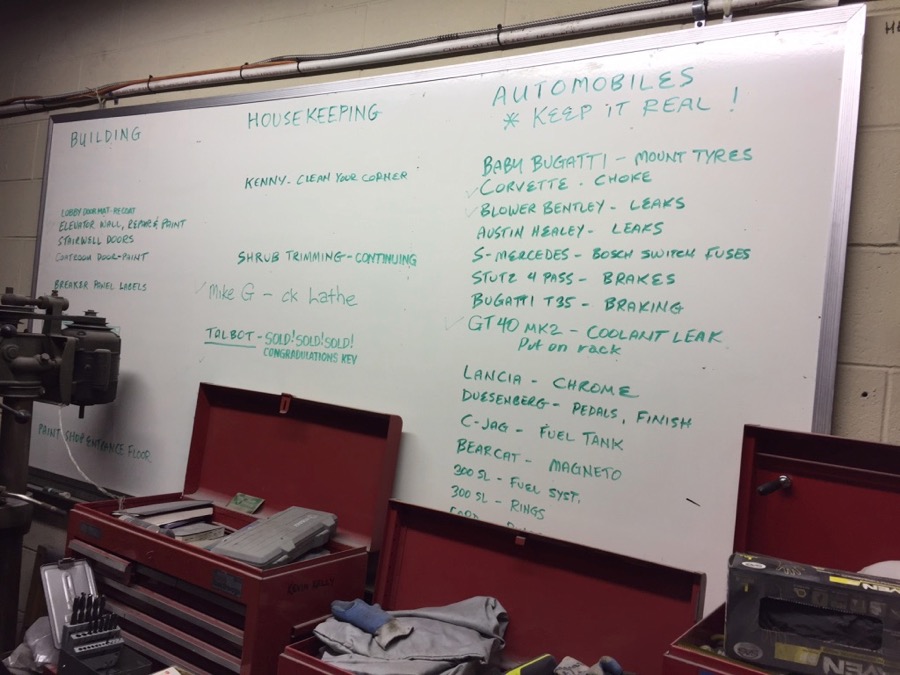 BUILDING
LOBBY DOOR MAT - RECOAT
ELEVATOR WALL, REPAIR & PAINT
STAIRWELL DOORS
COATROOM DOOR - PAINT
BREAKER PANEL LABELS
PAINT SHOP ENTRANCE FLOOR
HOUSEKEEPING
KENNY - CLEAN YOUR CORNER
SHRUB TRIMMING - CONTINUING
Mike G - ck Lathe
TALBOT - SOLD! SOLD! SOLD!
CONGRADULATIONS KEV
AUTOMOBILES
* KEEP IT REAL !
BABY BUGATTI - MOUNT TYRES
CORVETTE - CHOKE
BLOWER BENTLEY - LEAKS
AUSTIN HEALEY - LEAKS
S-MERCEDES - BOSCH SWITCH FUSES
STUTZ 4 PASS - BRAKES
BUGATTI T35 - BRAKING
GT40 MK2 - COOLANT LEAK
Put on rack
LANCIA - CHROME
DUESENBERG - PEDALS, FINISH
C-JAG - FUEL TANK
BEARCAT - MAGNETO
300 SL - FUEL SYST.
300 SL - RINGS